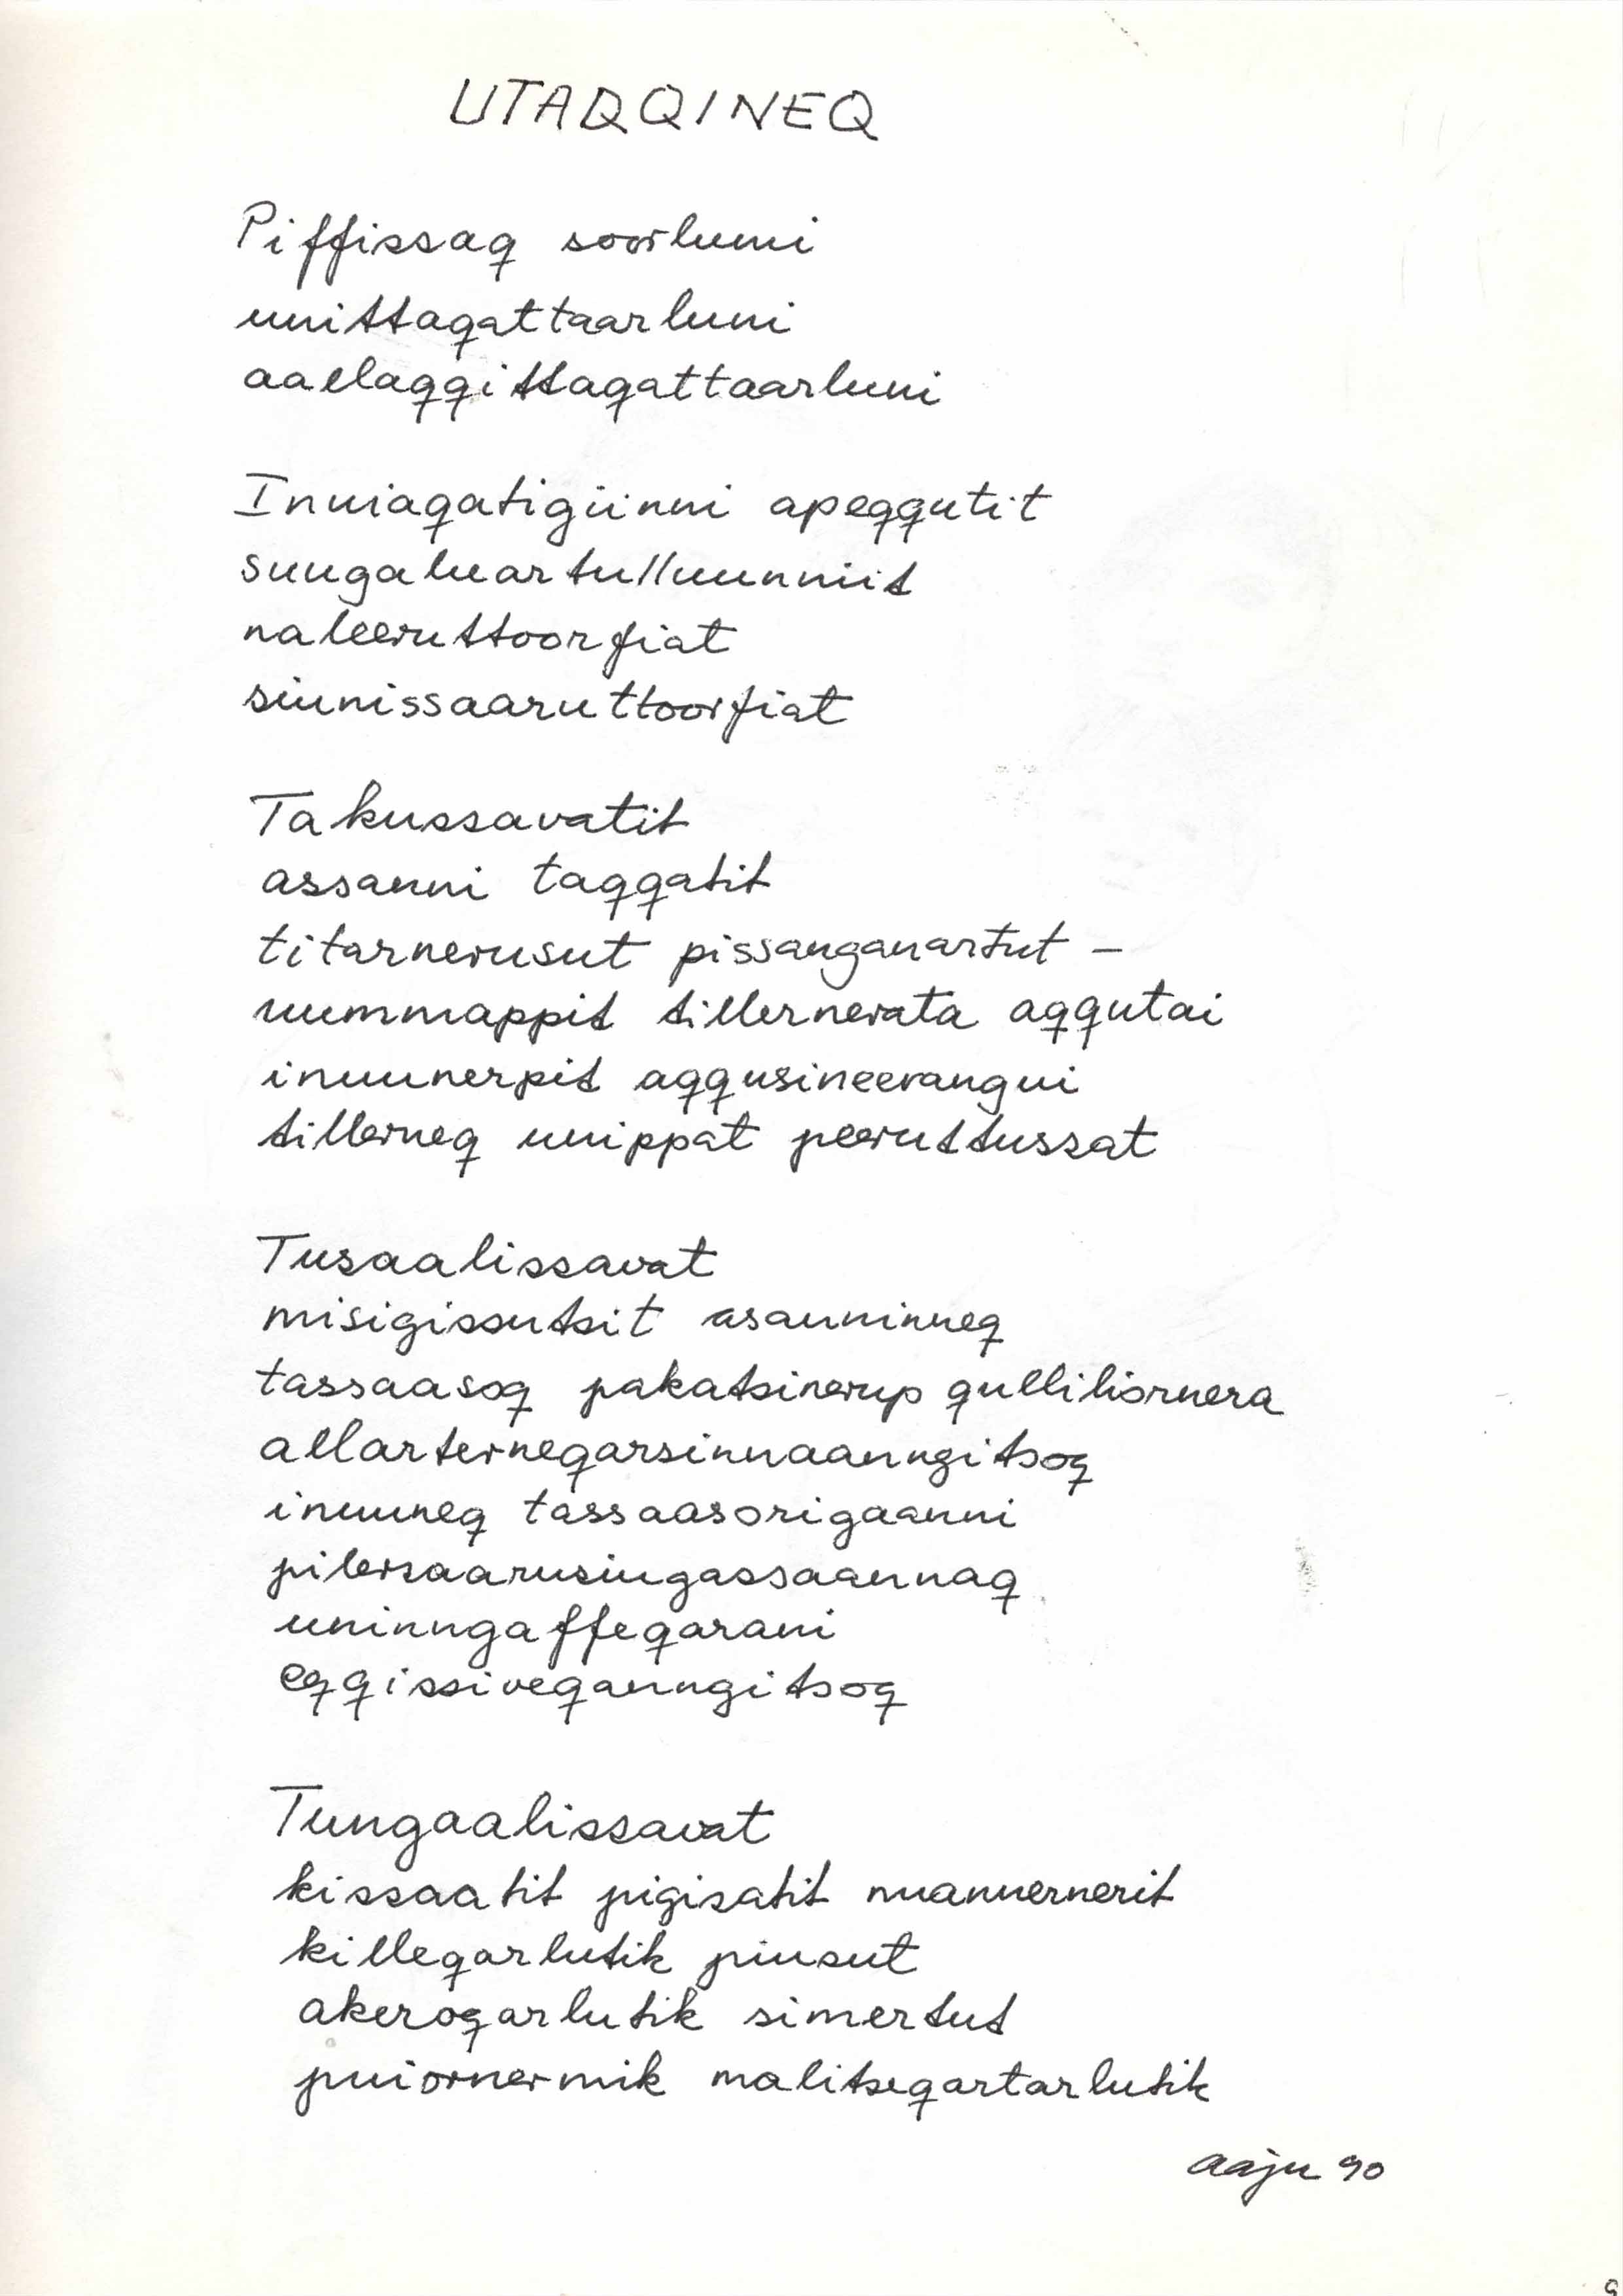 UTAQQINEQ
Piffissaq soorlumi
unittaqattaarluni
aallaqqittaqattaarluni
Inuiaqatigiinni apeqqutit
suugaluartulluunniit
naleeruttoorfiat
siunissaaruttoorfiat
Takussavatit
assanni taqqatit
titarnerusut pissanganartut –
uummappit tillernerata aqqutai
inuunerpit aqqusineeranngui
tillerneq unippat peeruttussat
Tusaalissavat
misigissutsit asanninneq
tassaasoq pakatsinerup qulliliornera
allarterneqarsinnaanngitsoq
inuuneq tassaasorigaanni
pilersaarusiugassaannaq
uninngaffeqarani
eqqissiveqanngitsoq
Tungaalissavat
kissaatit pigisatit nuannernerit
killeqarlutik piusut
akeroqarlutik simertut
puiornermik malitseqartarlutik
aaju 90